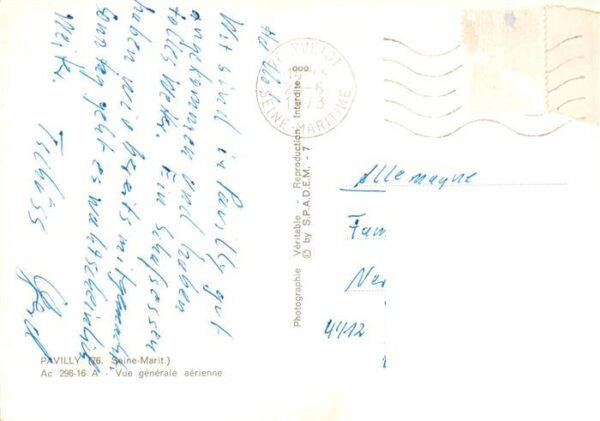 Hallo
Wir sind in Pavilly gut
angekommen und haben
tolles Wetter. Ein Schafessen
haben wir bereits mitgemacht.
Sonntag geht es wahrscheinlich
weiter.
Tschüss Gerd
PAVILLY (76. Seine-Marit.)
Ac 296-16 A - Vue générale aérienne
Photographie Véritable - Reproduction Interdite
© by S.P.A.D.E.M. - 7
YVETOT
1973
SEINE-MARITIME
Allemagne
Fam
4412